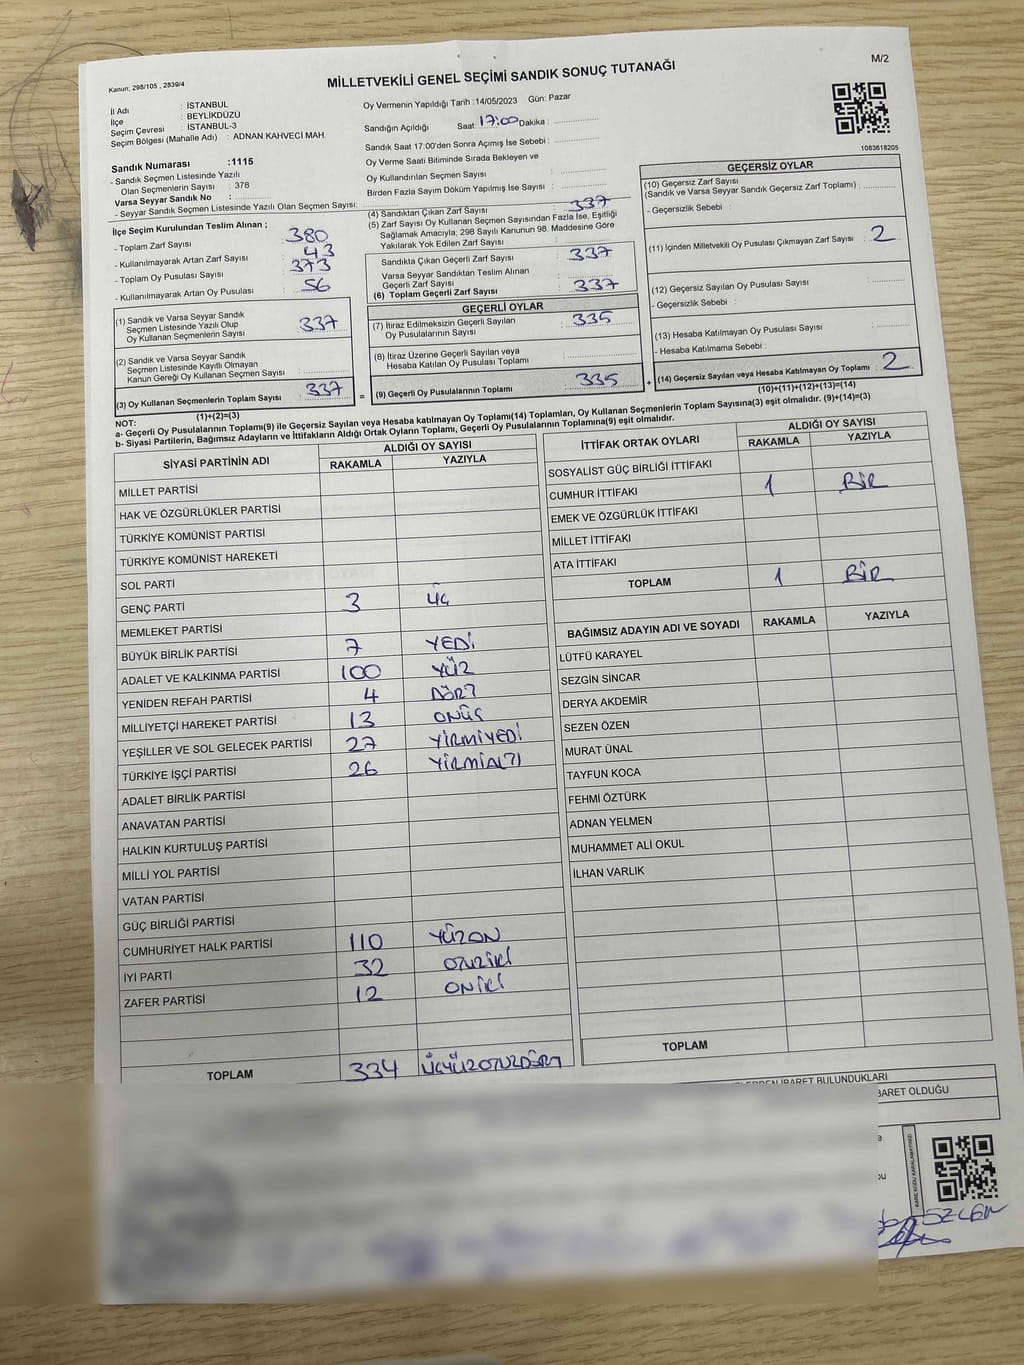 Kanun: 298/105 , 2839/4
MİLLETVEKİLİ GENEL SEÇİMİ SANDIK SONUÇ TUTANAĞI
M/2
İl Adı : İSTANBUL
İlçe : BEYLİKDÜZÜ
Seçim Çevresi : İSTANBUL-3
Seçim Bölgesi (Mahalle Adı) : ADNAN KAHVECİ MAH.
Oy Vermenin Yapıldığı Tarih :14/05/2023 Gün: Pazar
Sandığın Açıldığı Saat 17:00 Dakika :
Sandık Saat 17:00'den Sonra Açımış İse Sebebi :
Oy Verme Saati Bitiminde Sırada Bekleyen ve
Oy Kullandırılan Seçmen Sayısı :
Birden Fazla Sayım Döküm Yapılmış İse Sayısı :
1083618205
Sandık Numarası :1115
- Sandık Seçmen Listesinde Yazılı
Olan Seçmenlerin Sayısı : 378
Varsa Seyyar Sandık No :
- Seyyar Sandık Seçmen Listesinde Yazılı Olan Seçmen Sayısı:
İlçe Seçim Kurulundan Teslim Alınan ;
- Toplam Zarf Sayısı : 380
- Kullanılmayarak Artan Zarf Sayısı : 43
- Toplam Oy Pusulası Sayısı : 373
- Kullanılmayarak Artan Oy Pusulası : 56
(1) Sandık ve Varsa Seyyar Sandık
Seçmen Listesinde Yazılı Olup
Oy Kullanan Seçmenlerin Sayısı : 337
(2) Sandık ve Varsa Seyyar Sandık
Seçmen Listesinde Kayıtlı Olmayan
Kanun Gereği Oy Kullanan Seçmen Sayısı :
(3) Oy Kullanan Seçmenlerin Toplam Sayısı : 337
(1)+(2)=(3)
(4) Sandıktan Çıkan Zarf Sayısı : 337
(5) Zarf Sayısı Oy Kullanan Seçmen Sayısından Fazla İse, Eşitliği
Sağlamak Amacıyla; 298 Sayılı Kanunun 98. Maddesine Göre
Yakılarak Yok Edilen Zarf Sayısı :
Sandıkta Çıkan Geçerli Zarf Sayısı : 337
Varsa Seyyar Sandıktan Teslim Alınan
Geçerli Zarf Sayısı :
(6) Toplam Geçerli Zarf Sayısı : 337
GEÇERLİ OYLAR
(7) İtiraz Edilmeksizin Geçerli Sayılan
Oy Pusulalarının Sayısı : 335
(8) İtiraz Üzerine Geçerli Sayılan veya
Hesaba Katılan Oy Pusulası Toplamı :
= (9) Geçerli Oy Pusulalarının Toplamı : 335 +
GEÇERSİZ OYLAR
(10) Geçersiz Zarf Sayısı
(Sandık ve Varsa Seyyar Sandık Geçersiz Zarf Toplamı) :
- Geçersizlik Sebebi :
(11) İçinden Milletvekili Oy Pusulası Çıkmayan Zarf Sayısı : 2
(12) Geçersiz Sayılan Oy Pusulası Sayısı :
- Geçersizlik Sebebi :
(13) Hesaba Katılmayan Oy Pusulası Sayısı :
- Hesaba Katılmama Sebebi :
(14) Geçersiz Sayılan veya Hesaba Katılmayan Oy Toplamı : 2
(10)+(11)+(12)+(13)=(14)
NOT:
a- Geçerli Oy Pusulalarının Toplamı(9) ile Geçersiz Sayılan veya Hesaba katılmayan Oy Toplamı(14) Toplamları, Oy Kullanan Seçmenlerin Toplam Sayısına(3) eşit olmalıdır. (9)+(14)=(3)
b- Siyasi Partilerin, Bağımsız Adayların ve İttifakların Aldığı Ortak Oyların Toplamı, Geçerli Oy Pusulalarının Toplamına(9) eşit olmalıdır.
SİYASİ PARTİNİN ADI ALDIĞI OY SAYISI
RAKAMLA YAZIYLA
MİLLET PARTİSİ
HAK VE ÖZGÜRLÜKLER PARTİSİ
TÜRKİYE KOMÜNİST PARTİSİ
TÜRKİYE KOMÜNİST HAREKETİ
SOL PARTİ
GENÇ PARTİ 3 ÜÇ
MEMLEKET PARTİSİ
BÜYÜK BİRLİK PARTİSİ 7 YEDİ
ADALET VE KALKINMA PARTİSİ 100 YÜZ
YENİDEN REFAH PARTİSİ 4 DÖRT
MİLLİYETÇİ HAREKET PARTİSİ 13 ONÜÇ
YEŞİLLER VE SOL GELECEK PARTİSİ 27 YİRMİYEDİ
TÜRKİYE İŞÇİ PARTİSİ 26 YİRMİALTI
ADALET BİRLİK PARTİSİ
ANAVATAN PARTİSİ
HALKIN KURTULUŞ PARTİSİ
MİLLİ YOL PARTİSİ
VATAN PARTİSİ
GÜÇ BİRLİĞİ PARTİSİ
CUMHURİYET HALK PARTİSİ 110 YÜZON
İYİ PARTİ 32 OTUZİKİ
ZAFER PARTİSİ 12 ONİKİ
TOPLAM 334 ÜÇYÜZOTUZDÖRT
İTTİFAK ORTAK OYLARI ALDIĞI OY SAYISI
RAKAMLA YAZIYLA
SOSYALİST GÜÇ BİRLİĞİ İTTİFAKI
CUMHUR İTTİFAKI 1 BİR
EMEK VE ÖZGÜRLÜK İTTİFAKI
MİLLET İTTİFAKI
ATA İTTİFAKI
TOPLAM 1 BİR
BAĞIMSIZ ADAYIN ADI VE SOYADI RAKAMLA YAZIYLA
LÜTFÜ KARAYEL
SEZGİN SİNCAR
DERYA AKDEMİR
SEZEN ÖZEN
MURAT ÜNAL
TAYFUN KOCA
FEHMİ ÖZTÜRK
ADNAN YELMEN
MUHAMMET ALİ OKUL
İLHAN VARLIK
TOPLAM
İBARET BULUNDUKLARI
BARET OLDUĞU
KARE KODU KARALAMAYINIZ